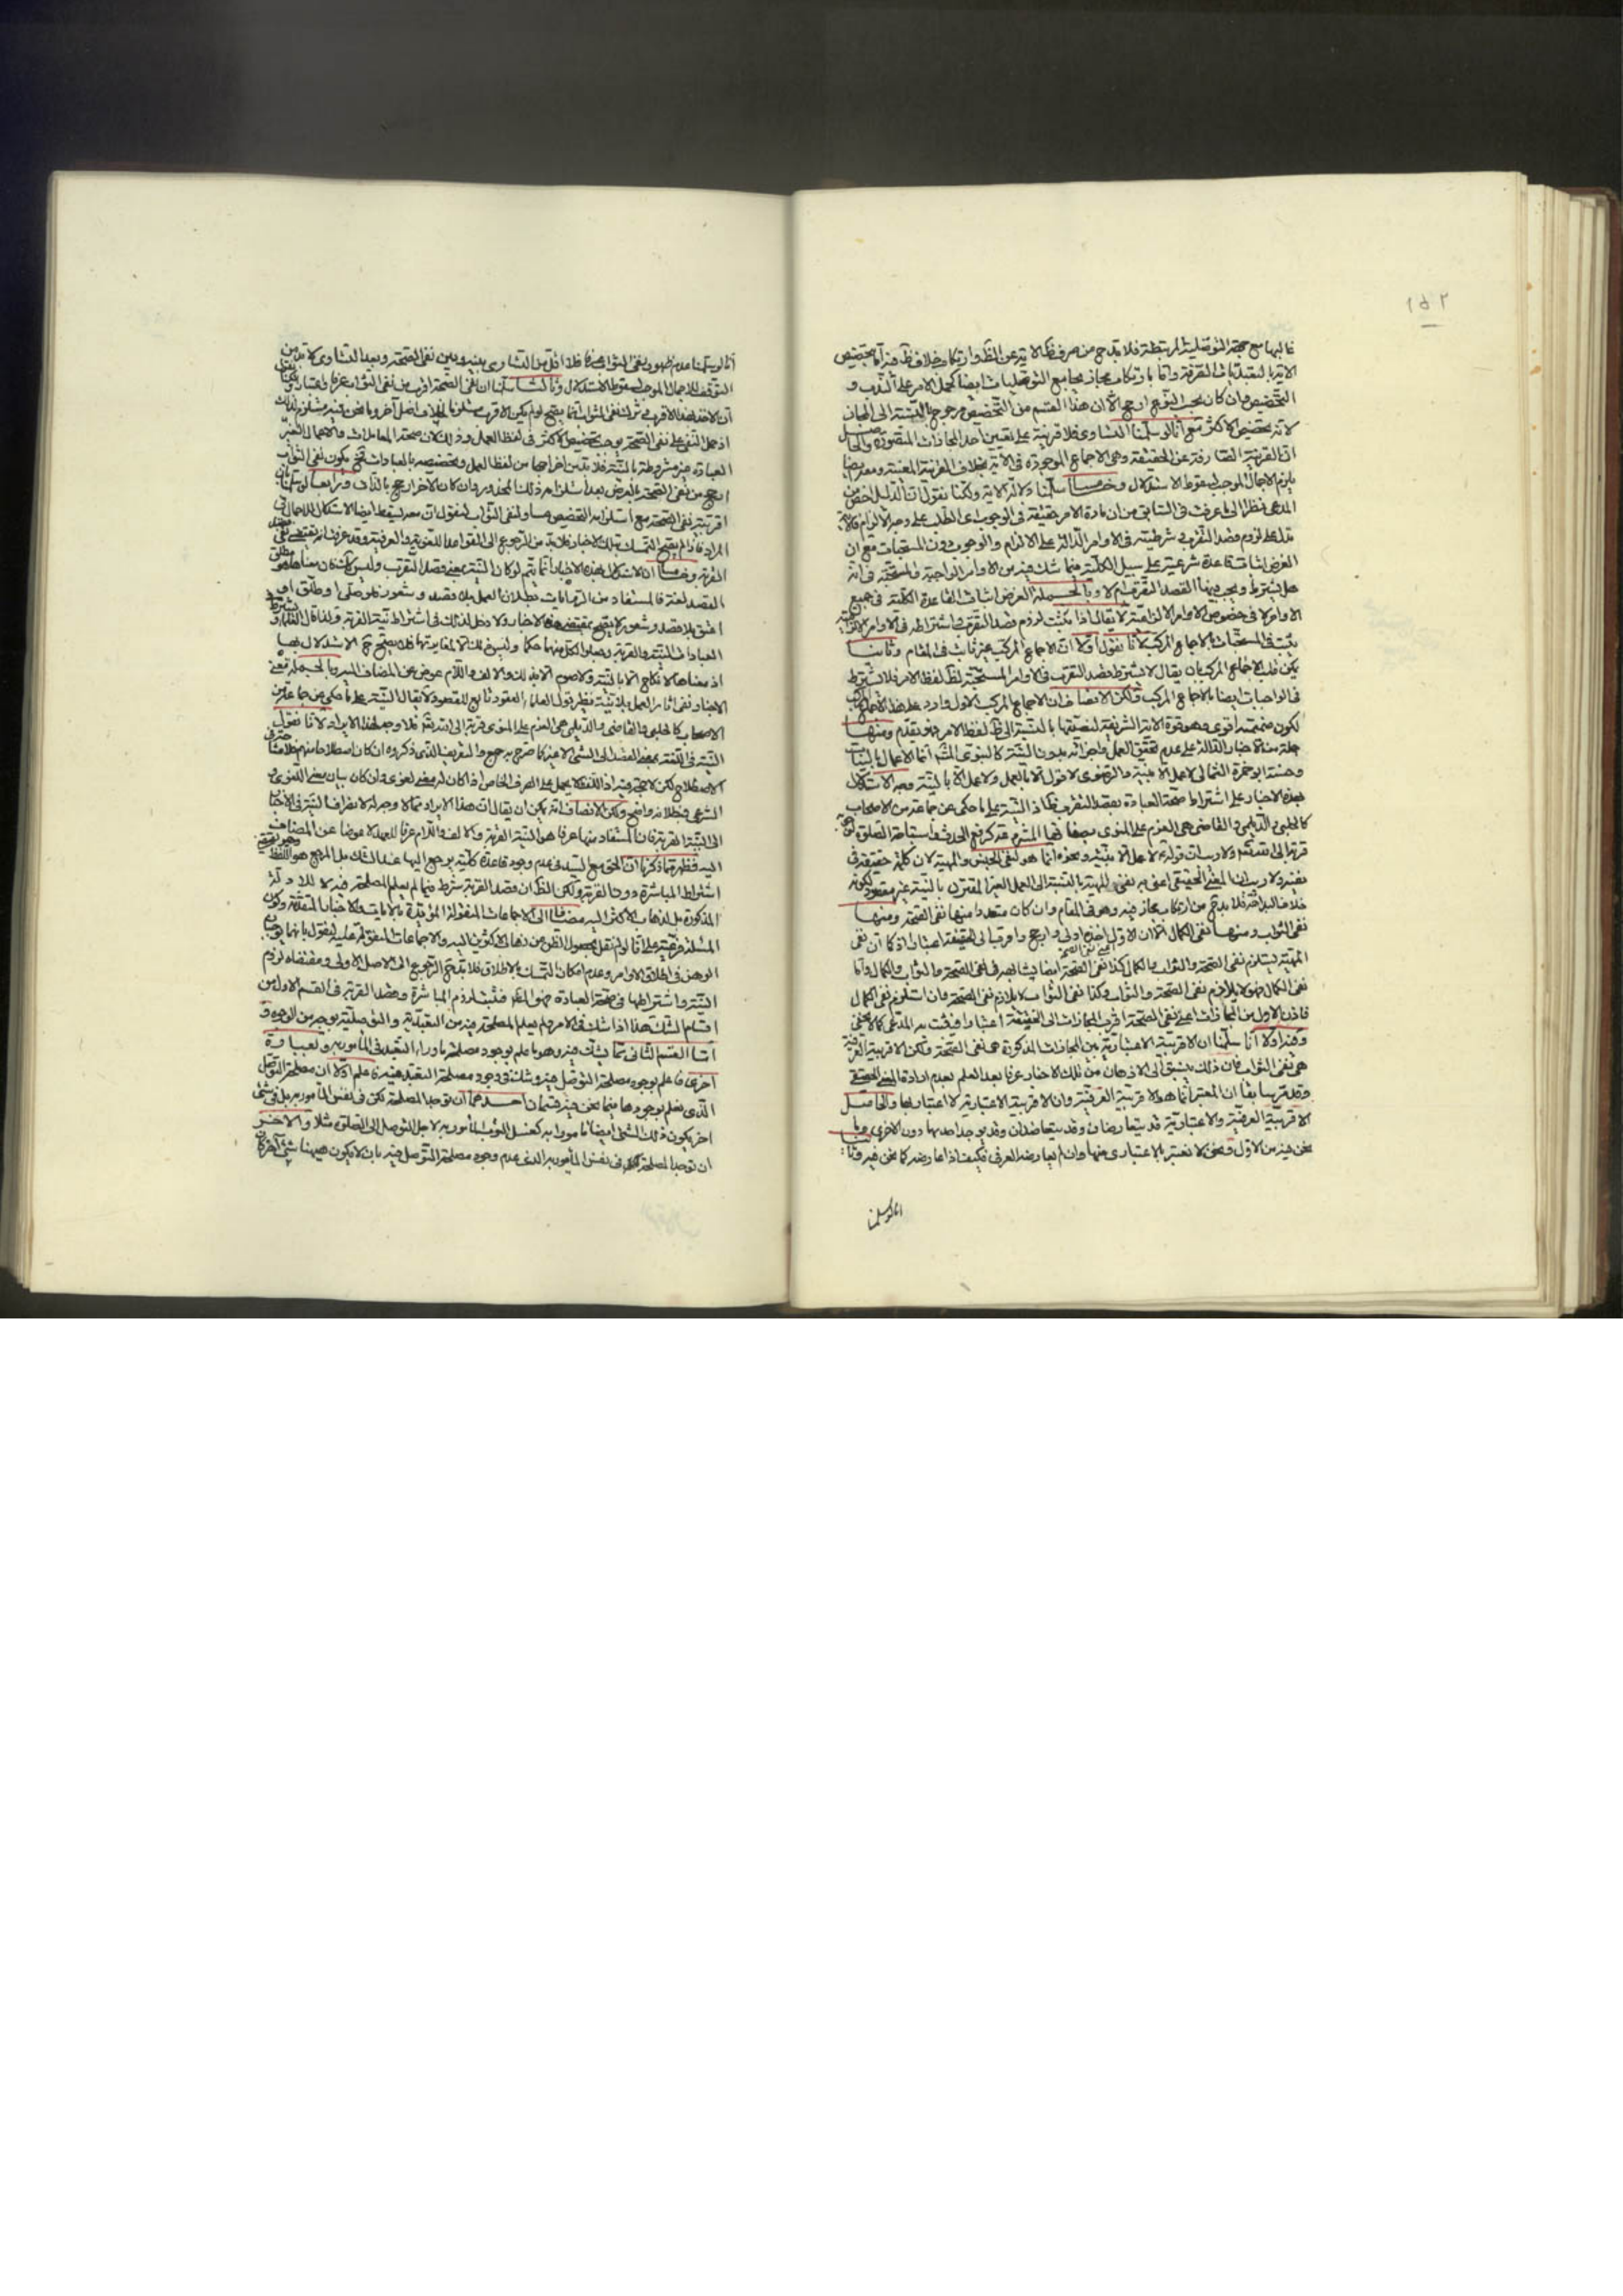 ١٥٢
غالبها مع جهة التوصلية المرتبطة فلا بد ح من صرف ظ الاية عن الظ وارتكاب خلاف ظ فيه اما بتخصيص
الاية بالتعبديات الصرفة واما بارتكاب مجاز يجامع التوصليات ايضا كحمل الامر على الندب و
التخصيص وان كان بحسب النوع ارجح الا ان هذا القسم من التخصيص مرجوح بالنسبة الى المجاز
لانه تخصيص الاكثر مع انا لو سلمنا التساوى فلا قرينة على تعيين احد المجازات المتصورة والحاصل
ان القرينة الصارفة عن الحقيقة وهى الاجماع الموجودة فى الاية بخلاف القرينة المعينة ومعه ايضا
يلزم الاجمال الموجب لسقوط الاستدلال وخامسا سلمنا دلالة الاية ولكنا نقول ان الدليل اخص من
المدعى نظرا الى ما عرفت فى السابق من ان مادة الامر حقيقة فى الوجوب اى الطلب على وجه الالزام فالاية
تدل على لزوم قصد التقرب شرطيته فى الاوامر الدالة على الالزام والوجوب دون المستحبات مع ان
الغرض اثبات قاعدة شرعية على سبيل الكلية فيما شك فيه من الاوامر الواجبة والمستحبة فى انه
هل يشترط ويجب فيها القصد التقرب ام لا وبالجملة الغرض اثبات القاعدة الكلية فى جميع
الاوامر لا فى خصوص الاوامر الالزامية لا يقال اذا ثبت لزوم قصد التقرب واشتراطه فى الاوامر الالزامية
يثبت فى المستحبات بالاجماع المركب لانا نقول اولا ان الاجماع المركب غير ثابت فى المقام وثانيا
يمكن قلب الاجماع المركب بان يقال لا يشترط قصد التقرب فى الاوامر المستحبة لظ لفظ الامر فلا يشترط
فى الواجبات ايضا بالاجماع المركب ولكن الانصاف ان الاجماع المركب الاول وارد على هذا الاجماع المركب
لكون ضميمته اقوى وهو قوة الاية الشريفة لنصيتها بالنسبة الى ظ لفظ الامر فهو يقدم ومنها
جملة من الاخبار الدالة على عدم تحقق العمل واجزائه بدون النية كالنبوى المشهور انما الاعمال بالنيات
وحسنة ابو حمزة الثمالى لا عمل الا بنية والرضوى لا قول الا بالعمل ولا عمل الا بالنية وجه الاستدلال
بهذه الاخبار على اشتراط صحة العبادة بقصد التقرب هكذا النية على ما حكى عن جماعة من الاصحاب
كالحلبى والديلمى والقاضى هى العزم على المنوى
قربة الى الله تعالى ولا ريب ان قوله لا عمل الا بنية ونحوه انما هو لنفى الجنس والمهية لان كلمة لا حقيقة فى
نفيه ولا ريب ان المعنى الحقيقى اعنى به نفى المهية بالنسبة الى العمل الغير المقترن بالنية غير مقصود لكونه
خلاف البداهة فلا بد ح من ارتكاب مجاز فيه وهو فى المقام وان كان متعددا منها نفى الصحة ومنها
نفى الثواب ومنها نفى الكمال الا ان الاول اخذه اولى وارجح واقرب الى الحقيقة اعتبارا اذ كما ان نفى
المهية يستلزم نفى الصحة والثواب والكمال كذا نفى الصحة ايضا
نفى الكمال فهو لا يلازم نفى الصحة والثواب وكذا نفى الثواب لا يلازم نفى الصحة وان استلزم نفى الكمال
فاذن الاول من المجازات اعنى نفى الصحة اقرب المجازات الى الحقيقة اعتبارا فيثبت به المدعى كما لا يخفى
وفيه اولا انا سلمنا ان الاقربية الاعتبارية من المجازات المذكورة هى نفى الصحة ولكن الاقربية العرفية
هى نفى الثواب فان ذلك ينسبق الى الاذهان من تلك الاخبار عرفا بعد العلم بعدم ارادة المعنى الحقيقى
وقد مر سابقا ان المعتبر انما هو الاقربية العرفية وان الاقربية الاعتبارية لا اعتبار بها والحاصل
الاقربية العرفية والاعتبارية قد يتعارضان وقد يتعاضدان وقد يوجد احدهما دون الاخرى وما
نحن فيه من الاول فنحن لا نعتبر بالاعتبارى منها وان لم يعارضه العرفى فكيف اذا عارضه كما نحن فيه وثانيا
انا لو سلمنا
انا لو سلمنا عدم ظهور نفى الثواب عرفا فلا اقل من التساوى بينه وبين نفى الصحة وبعد التساوى لا بد من
التوقف للاجمال الموجب لسقوط الاستدلال وثالثا سلمنا ان نفى الصحة اقرب من نفى الثواب عرفا واعتبارا
اذ حمل النفى على نفى الصحة يوجب تخصيص الاكثر فى لفظ العمل وذلك لان صحة المعاملات والاعمال الغير
العبادة غير مشروطة بالنية فلا بد من اخراجها من لفظ العمل وتخصيصه بالعبادات فح يكون نفى الثواب
ارجح من نفى الصحة بالعرض بعد استلزامه ذلك المحذور وان كان الاخر ارجح بالذات ورابعا لو سلمنا
اقربية نفى الصحة مع استلزامه التخصيص مساو لنفى الثواب فنقول ان معه يسقط ايضا الاستدلال للاجمال فى
المراد فاذا لم يصح التمسك بتلك الاخبار فلا بد من الرجوع الى القواعد اللغوية والعرفية وقد عرفت انه تقتضى نفى
القربة وخامسا ان الاستدلال بهذه الاخبار انما يتم لو كان النية بمعنى قصد التقرب وليس كذلك بل معناها هو مطلق
القصد لغة فالمستفاد من الروايات بطلان العمل بلا قصد وشعور فلو صلى او طلق او
اعتق بلا قصد وشعور لا يصح بمقتضى هذه الاخبار ولا دخل لذلك فى اشتراط نية القربة ولذا قال العلماء يشترط فى
العبادات النية والقربة وجعلوا لكل منهما حكما وليس ذلك الا لمغايرتهما فلا يصح ح الاستدلال بها
اذ معناها لا نكاح الا بالنية ولا صوم الا بذلك والالف واللام عوض عن المضاف اليه وبالجملة معنى
الاخبار نفى اثار العمل بلا نية نظير قول العلماء العقود تابع للقصود لا يقال النية على ما حكى عن جماعة من
الاصحاب كالحلبى والقاضى والديلمى هى العزم على المنوى قربة الى الله تعالى فلا وجه لهذا الايراد لانا نقول
النية فى اللغة بمعنى القصد الى الشىء لا غير كما صرح به جمع والتعريف الذى ذكروه ان كان اصطلاحا منهم فلا مشاحة فى
الاصطلاح لكن لا يجدى فيه اذ اللفظ لا يحمل على العرف الخاص اذا كان له معنى لغوى وان كان بيان معنى اللغوى او
الشرعى فبطلانه واضح ولكن الانصاف انه يمكن ان يقال ان هذا الايراد مما لا وجه له لانصراف النية فى الاخبار
الى النية القربة فان المستفاد منها عرفا هو النية القربة والالف واللام عرفا للعهد لا عوضا عن المضاف
اليه فظهر مما ذكرنا ان الحق مع السيد فى عدم وجود قاعدة كلية يرجع اليها عند الشك بل المرجع هو اللفظ
اشتراط المباشرة دون القربة ولكن الظ ان قصد القربة شرط فيما لم يعلم المصلحة فيه لا للادلة
المذكورة بل لذهاب الاكثر اليه مضافا الى الاجماعات المنقولة المؤيدة بالايات والاخبار المتقدمة وكون
المسئلة فرعية على انا لو لم نقل بحصول الظن من ذهاب الاكثرين اليه والاجماعات المنقولة عليه فنقول بانهما يوجب
الوهن فى اطلاق الاوامر وعدم امكان التمسك بالاطلاق فلا بد ح الرجوع الى الاصل الاولى ومقتضاه لزوم
النية واشتراطها فى صحة العبادة فهو المتبع فثبت لزوم المباشرة وقصد القربة فى القسم الاول من
اقسام الشك هذا اذا شك فى الامر ولم يعلم المصلحة فيه من التعبدية والتوصلية بوجه من الوجوه و
اما القسم الثانى مما يشك فيه وهو ما علم بوجود مصلحة ما وراء التعبد فى المأمور به وبعبارة
اخرى ما علم بوجود مصلحة التوصل فيه وشك فى وجود مصلحة التعبد فيه فاعلم اولا ان مصلحة التوصل
الذى نعلم بوجودها فيما نحن فيه قسمان احدهما ان توجد المصلحة لكن فى نفس المأمور به بل فى شىء
اخر يكون ذلك الشىء ايضا مامورا به كغسل الثوب المأمور به لاجل التوصل الى الصلوة مثلا والاخر
ان توجد المصلحة فى نفس المأمور به الذى عدم وجود مصلحة التوصل فيه بان لا يكون هيهنا شىء آخر كان